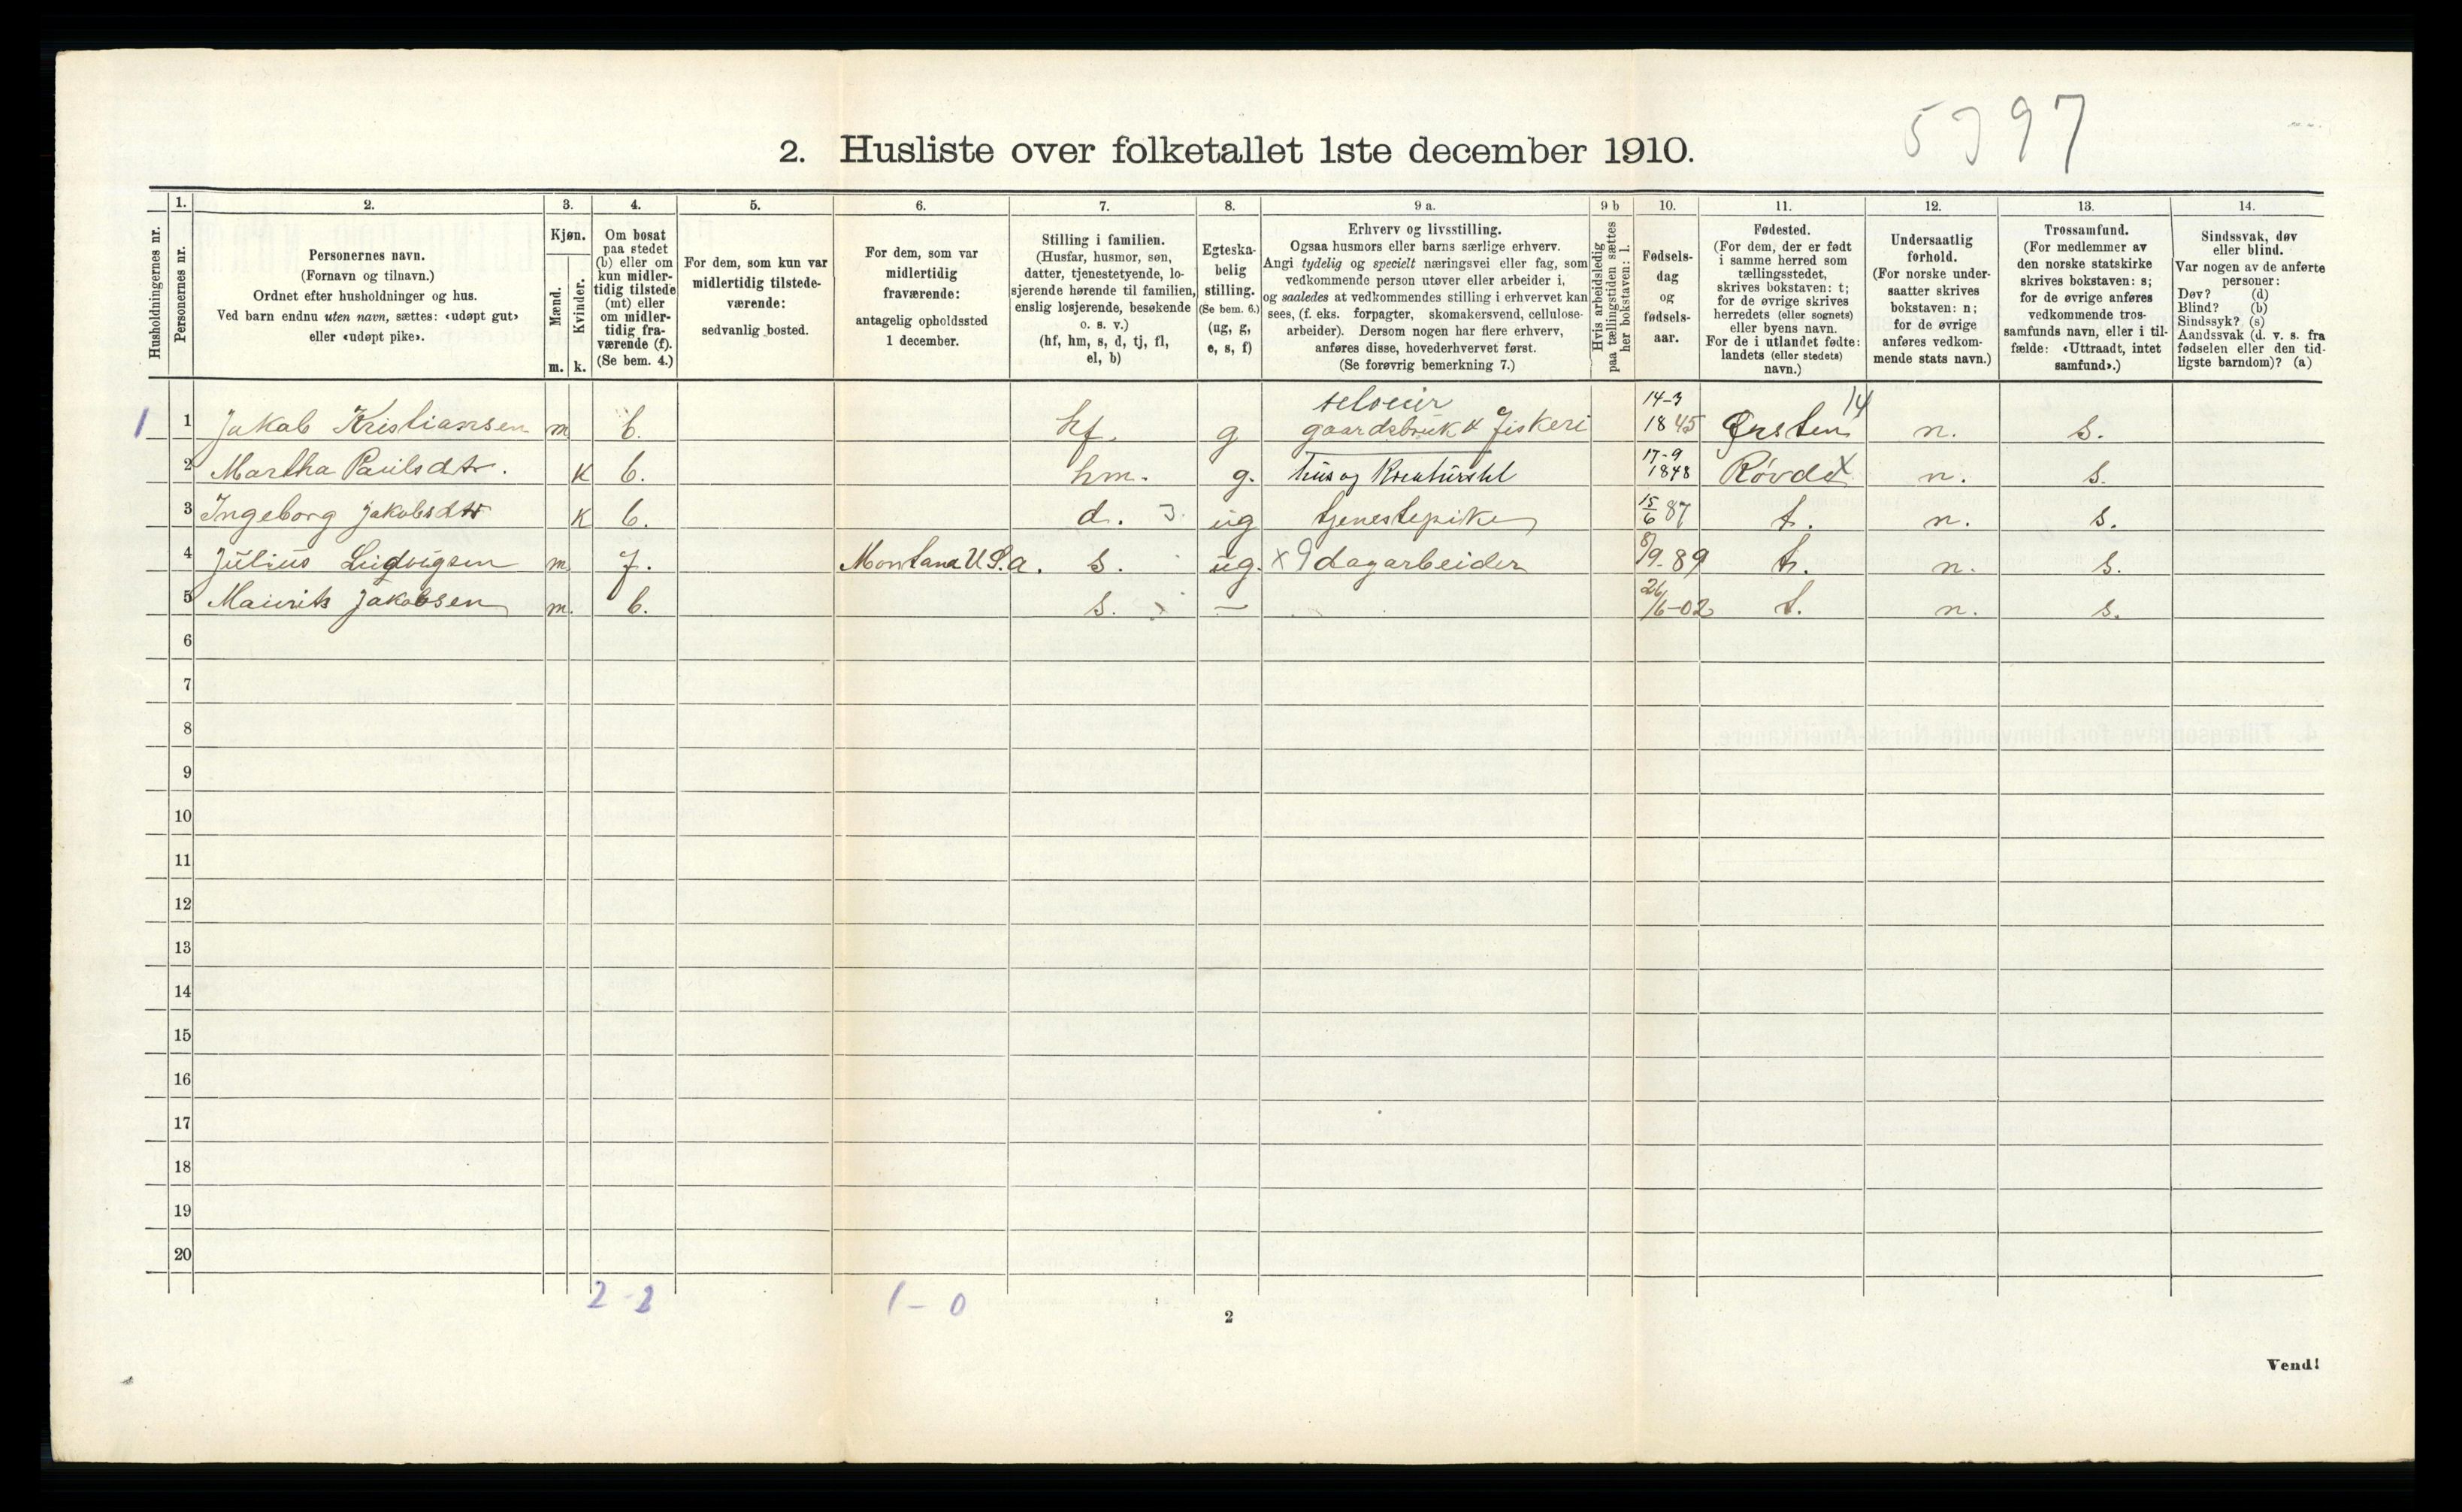 5997
2. Husliste over folketallet 1ste december 1910.
Husholdningernes nr.
1.
Personernes nr.
2.
Personernes navn.
(Fornavn og tilnavn.)
Ordnet efter husholdninger og hus.
Ved barn endnu uten navn, sættes: «udøpt gut»
eller «udøpt pike».
3.
Kjøn.
Mænd.
Kvinder.
m. k.
4.
Om bosat
paa stedet
(b) eller om
kun midler-
tidig tilstede
(mt) eller
om midler-
tidig fra-
værende (f).
(Se bem. 4.)
5.
For dem, som kun var
midlertidig tilstede-
værende:
sedvanlig bosted.
6.
For dem, som var
midlertidig
fraværende:
antagelig opholdssted
1 december.
7.
Stilling i familien.
(Husfar, husmor, søn,
datter, tjenestetyende, lo-
sjerende hørende til familien,
enslig losjerende, besøkende
o. s. v.)
(hf, hm, s, d, tj, fl,
el, b)
8.
Egteska-
belig
stilling.
(Se bem. 6.)
(ug, g,
e, s, f)
9 a.
Erhverv og livsstilling.
Ogsaa husmors eller barns særlige erhverv.
Angi tydelig og specielt næringsvei eller fag, som
vedkommende person utøver eller arbeider i,
og saaledes at vedkommendes stilling i erhvervet kan
sees, (f. eks. forpagter, skomakersvend, cellulose-
arbeider). Dersom nogen har flere erhverv,
anføres disse, hovederhvervet først.
(Se forøvrig bemerkning 7.)
9 b
Hvis arbeidsledig
paa tællingstiden sættes
her bokstaven: l.
10.
Fødsels-
dag
og
fødsels-
aar.
11.
Fødested.
(For dem, der er født
i samme herred som
tællingsstedet,
skrives bokstaven: t;
for de øvrige skrives
herredets (eller sognets)
eller byens navn.
For de i utlandet fødte:
landets (eller stedets)
navn.)
12.
Undersaatlig
forhold.
(For norske under-
saatter skrives
bokstaven: n;
for de øvrige
anføres vedkom-
mende stats navn.)
13.
Trossamfund.
(For medlemmer av
den norske statskirke
skrives bokstaven: s;
for de øvrige anføres
vedkommende tros-
samfunds navn, eller i til-
fælde: «Uttraadt, intet
samfund».)
14.
Sindssvak, døv
eller blind.
Var nogen av de anførte
personer:
Døv? (d)
Blind? (b)
Sindssyk? (s)
Aandssvak (d. v. s. fra
fødselen eller den tid-
ligste barndom)? (a)
seloeier 14-3 14
1 1 Jakob Kristiansen m b. hf. g gaardsbruk & Fiskeri 1845 Ørsten n. s.
17-9
2 Martha Paulsdtr. k b. hm. g. hus og Kreaturstel 1848 Røvde X n. s.
3 Ingeborg Jakobsdtr k b. d. ug tjenestepike 15/6 87 t. n. s.
4 Julius Ludvigsen m f. Montana U.S.a. s. ug. x 9 dagarbeider 8/9-89 t. n. s.
5 Maurits Jakobsen m. b. s. — 26/6-02 t. n. s.
6
7
8
9
10
11
12
13
14
15
16
17
18
19
20
2-2 1-0
2
Vend!